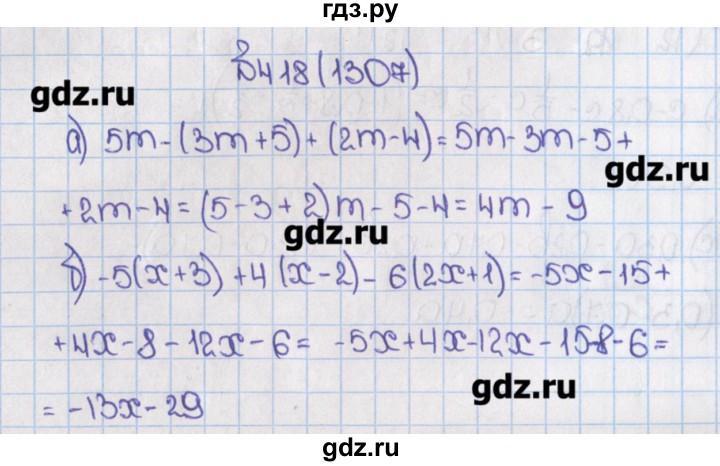 гдз.ру
В418(1307)
gdz.ru
а) 5m-(3m+5)+(2m-4)=5m-3m-5+
gdz.ru
+2m-4=(5-3+2)m-5-4=4m-9
gdz.ru
б) -5(x+3)+4(x-2)-6(2x+1)=-5x-15+
+4x-8-12x-6= -5x+4x-12x-15-8-6=
gdz.ru
=-13x-29
gdz.ru